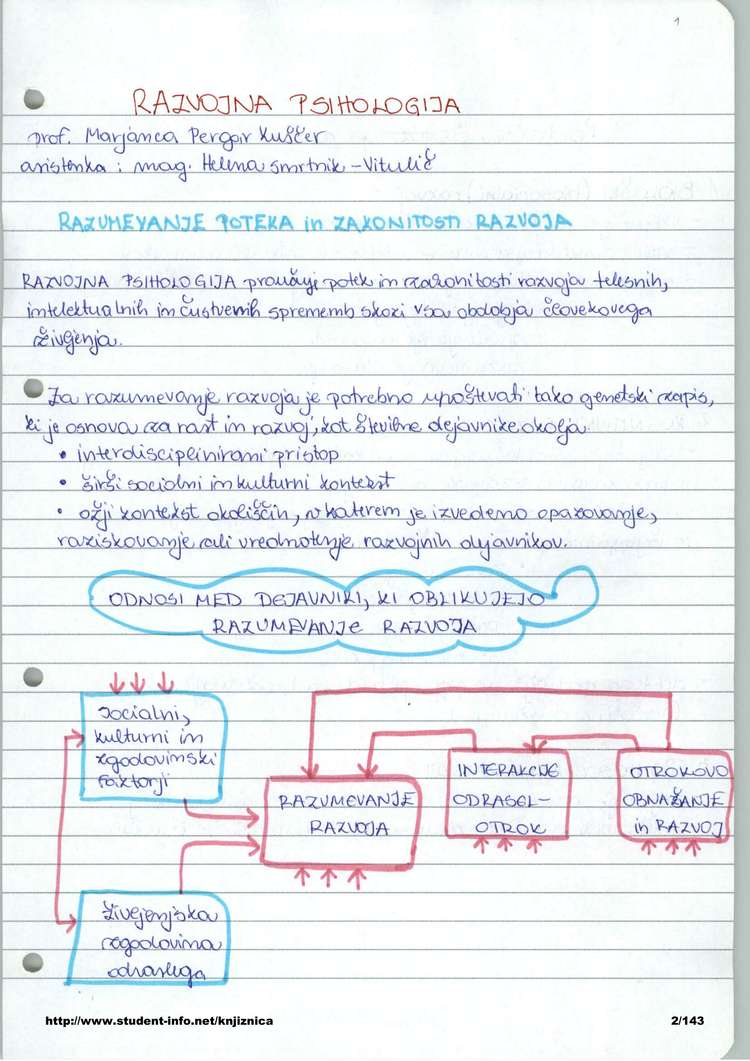 1
RAZVOJNA PSIHOLOGIJA
prof. Marjanca Pergar Kuščer
asistenka: mag. Helena Smrtnik-Vitulič
RAZUMEVANJE POTEKA in ZAKONITOSTI RAZVOJA
RAZVOJNA PSIHOLOGIJA proučuje potek in zakonitosti razvoja telesnih,
intelektualnih in čustvenih sprememb skozi vsa obdobja človekovega
življenja.
Za razumevanje razvoja je potrebno upoštevati tako genetski zapis,
ki je osnova za rast in razvoj, kot številne dejavnike okolja.
• interdisciplinirani pristop
• širši socialni in kulturni kontekst
• ožji kontekst okoliščin, v katerem je izvedemo opazovanje,
raziskovanje ali vrednotenje razvojnih dejavnikov.
ODNOSI MED DEJAVNIKI, KI OBLIKUJEJO
RAZUMEVANJE RAZVOJA
socialni,
kulturni in
zgodovinski
faktorji
RAZUMEVANJE
RAZVOJA
INTERAKCIJE
ODRASEL-
OTROK
OTROKOVO
OBNAŠANJE
in RAZVOJ
življenjska
zgodovina
odraslega
http://www.student-info.net/knjiznica
2/143